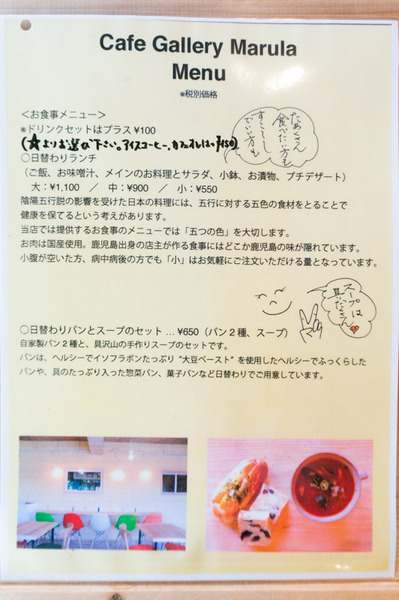 Cafe Gallery Marula
Menu
※税別価格
＜お食事メニュー＞
※ドリンクセットはプラス¥100
(★よりお選び下さい。アイスコーヒー、カフェオレは+¥150)
たくさん
食べたい方も
すこーし
でいい方も
○日替わりランチ
（ご飯、お味噌汁、メインのお料理とサラダ、小鉢、お漬物、プチデザート）
大：¥1,100　／　中：¥900　／　小：¥550
陰陽五行説の影響を受けた日本の料理には、五行に対する五色の食材をとることで
健康を保てるという考えがあります。
当店では提供するお食事のメニューでは「五つの色」を大切します。
お肉は国産使用。鹿児島出身の店主が作る食事にはどこか鹿児島の味が隠れています。
小腹が空いた方、病中病後の方でも「小」はお気軽にご注文いただける量となっています。
スープは
具だくさん
○日替わりパンとスープのセット … ¥650（パン２種、スープ）
自家製パン２種と、具沢山の手作りスープのセットです。
パンは、ヘルシーでイソフラボンたっぷり“大豆ペースト”を使用したヘルシーでふっくらした
パンや、具のたっぷり入った惣菜パン、菓子パンなど日替わりでご用意しています。